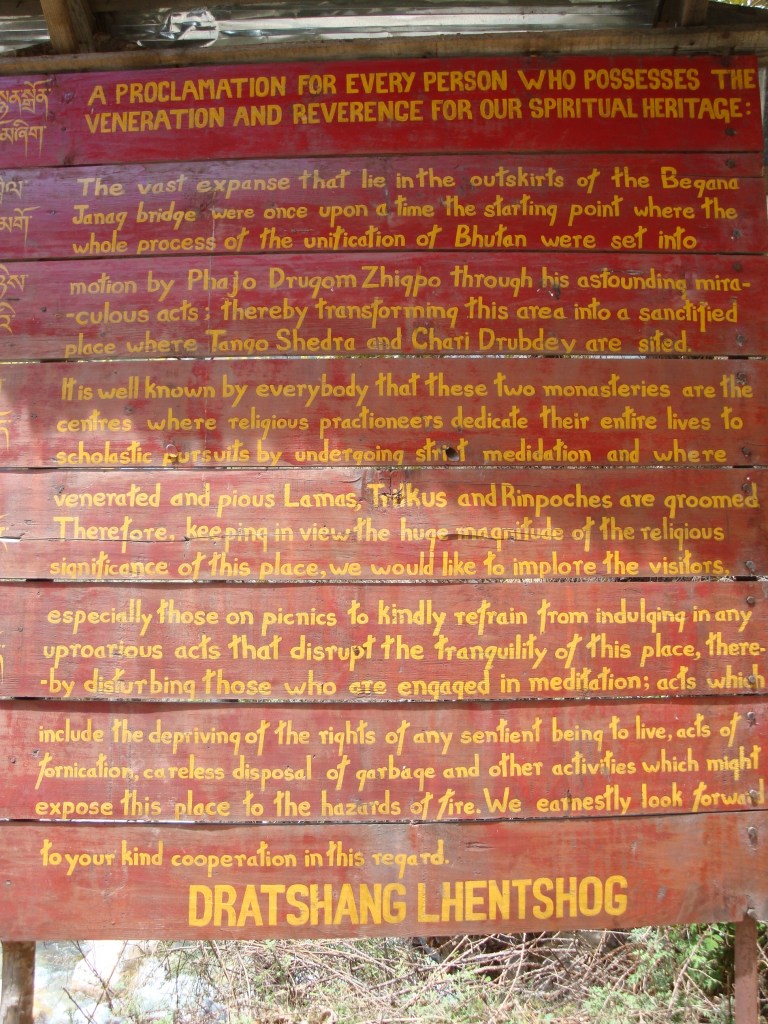 A PROCLAMATION FOR EVERY PERSON WHO POSSESSES THE
VENERATION AND REVERENCE FOR OUR SPIRITUAL HERITAGE:
The vast expanse that lie in the outskirts of the Begana
Janag bridge were once upon a time the starting point where the
whole process of the unification of Bhutan were set into
motion by Phajo Drugom Zhigpo through his astounding mira-
-culous acts; thereby transforming this area into a sanctified
place where Tango Shedra and Chari Drubdey are sited.
It is well known by everybody that these two monasteries are the
centres where religious practioneers dedicate their entire lives to
scholastic pursuits by undergoing strict medidation and where
venerated and pious Lamas, Trulkus and Rinpoches are groomed
Therefore, keeping in view the huge magnitude of the religious
significance of this place, we would like to implore the visitors,
especially those on picnics to kindly refrain from indulging in any
uproarious acts that disrupt the tranquility of this place, there-
-by disturbing those who are engaged in meditation; acts which
include the depriving of the rights of any sentient being to live, acts of
fornication, careless disposal of garbage and other activities which might
expose this place to the hazards of fire. We earnestly look forward
to your kind cooperation in this regard.
DRATSHANG LHENTSHOG